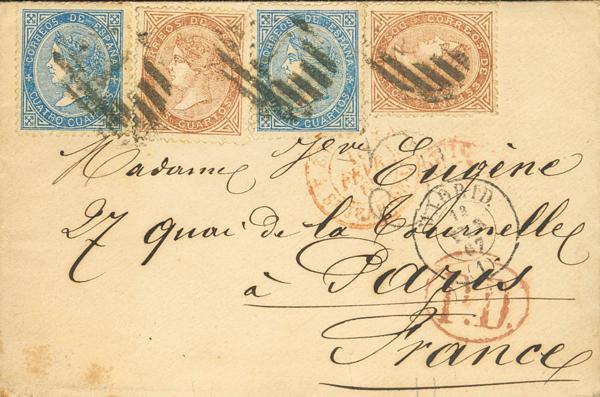 CORREOS DE ESPAÑA
CUATRO CUARTOS
CORREOS DE
CUARTOS
CORREOS DE ESPAÑA
CUATRO CUARTOS
Madame Vve Eugène
27 quai de la Tournelle
à Paris
France
MADRID
12
67
(1)
P.D.